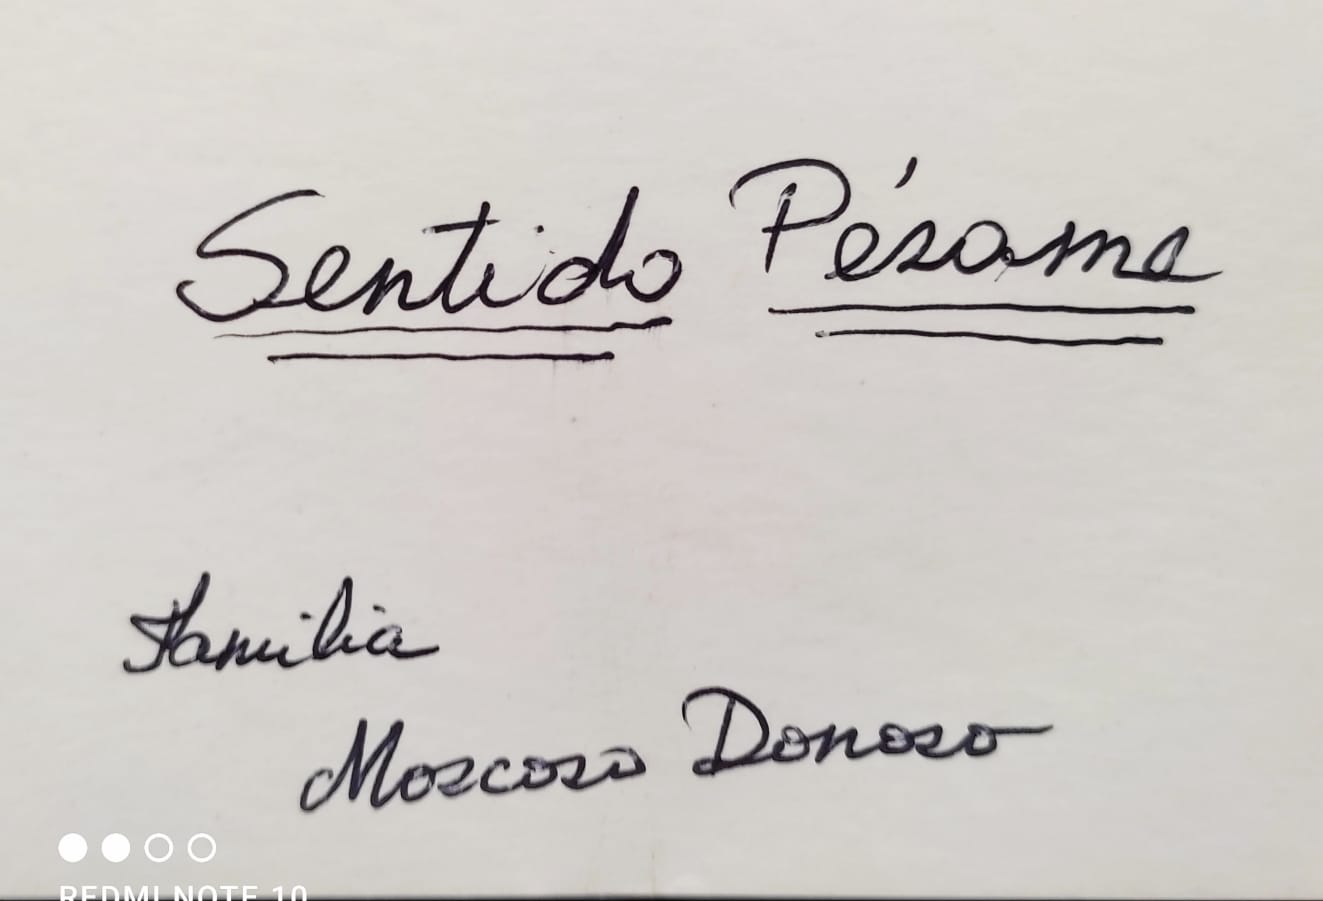 Sentido Pésame
Familia
Moscoso Donoso
REDMI NOTE 10